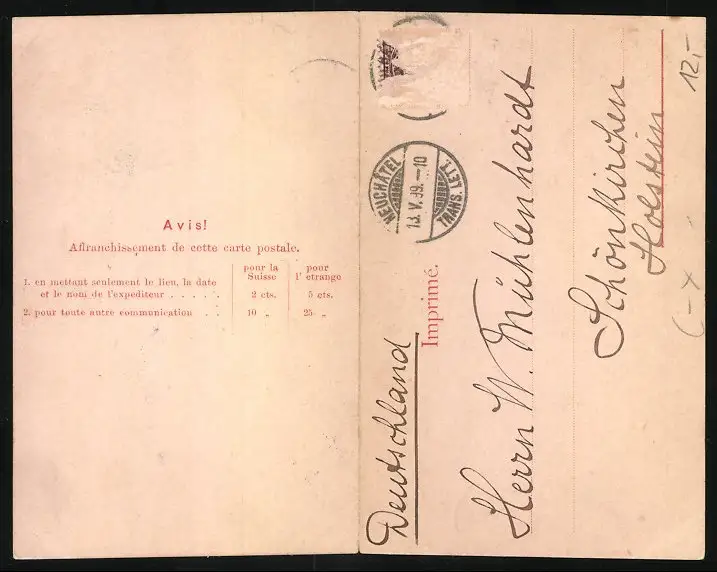 Avis!
Affranchissement de cette carte postale.
pour la Suisse
pour l' etrange
1. en mettant seulement le lieu, la date
et le nom de l'expediteur . . . . . 2 cts. 5 cts.
2. pour toute autre communication . . 10 „ 25 „
NEUCHÂTEL
13. V. 99. – 10
TRANS. LETT.
Imprimé.
Deutschland
Herrn W. Mühlenhardt
Schönkirchen
Holstein
12,-
(-x